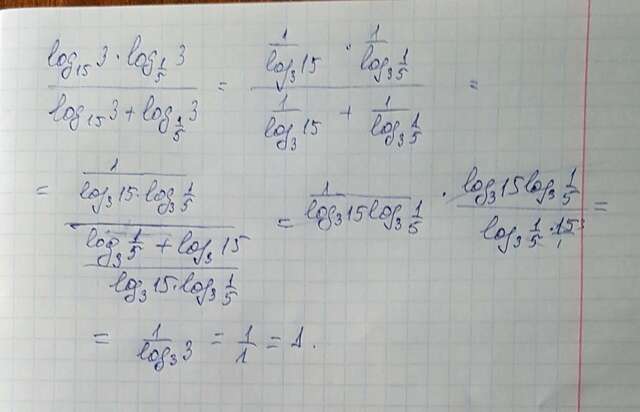 (log₁₅3 · log_{1/5}3) / (log₁₅3 + log_{1/5}3) = (1/log₃15 · 1/log₃(1/5)) / (1/log₃15 + 1/log₃(1/5)) =
= (1/(log₃15·log₃(1/5))) / ((log₃(1/5) + log₃15)/(log₃15·log₃(1/5))) = 1/(log₃15log₃(1/5)) · (log₃15log₃(1/5))/(log₃(1/5 · 15/1)) =
= 1/log₃3 = 1/1 = 1.